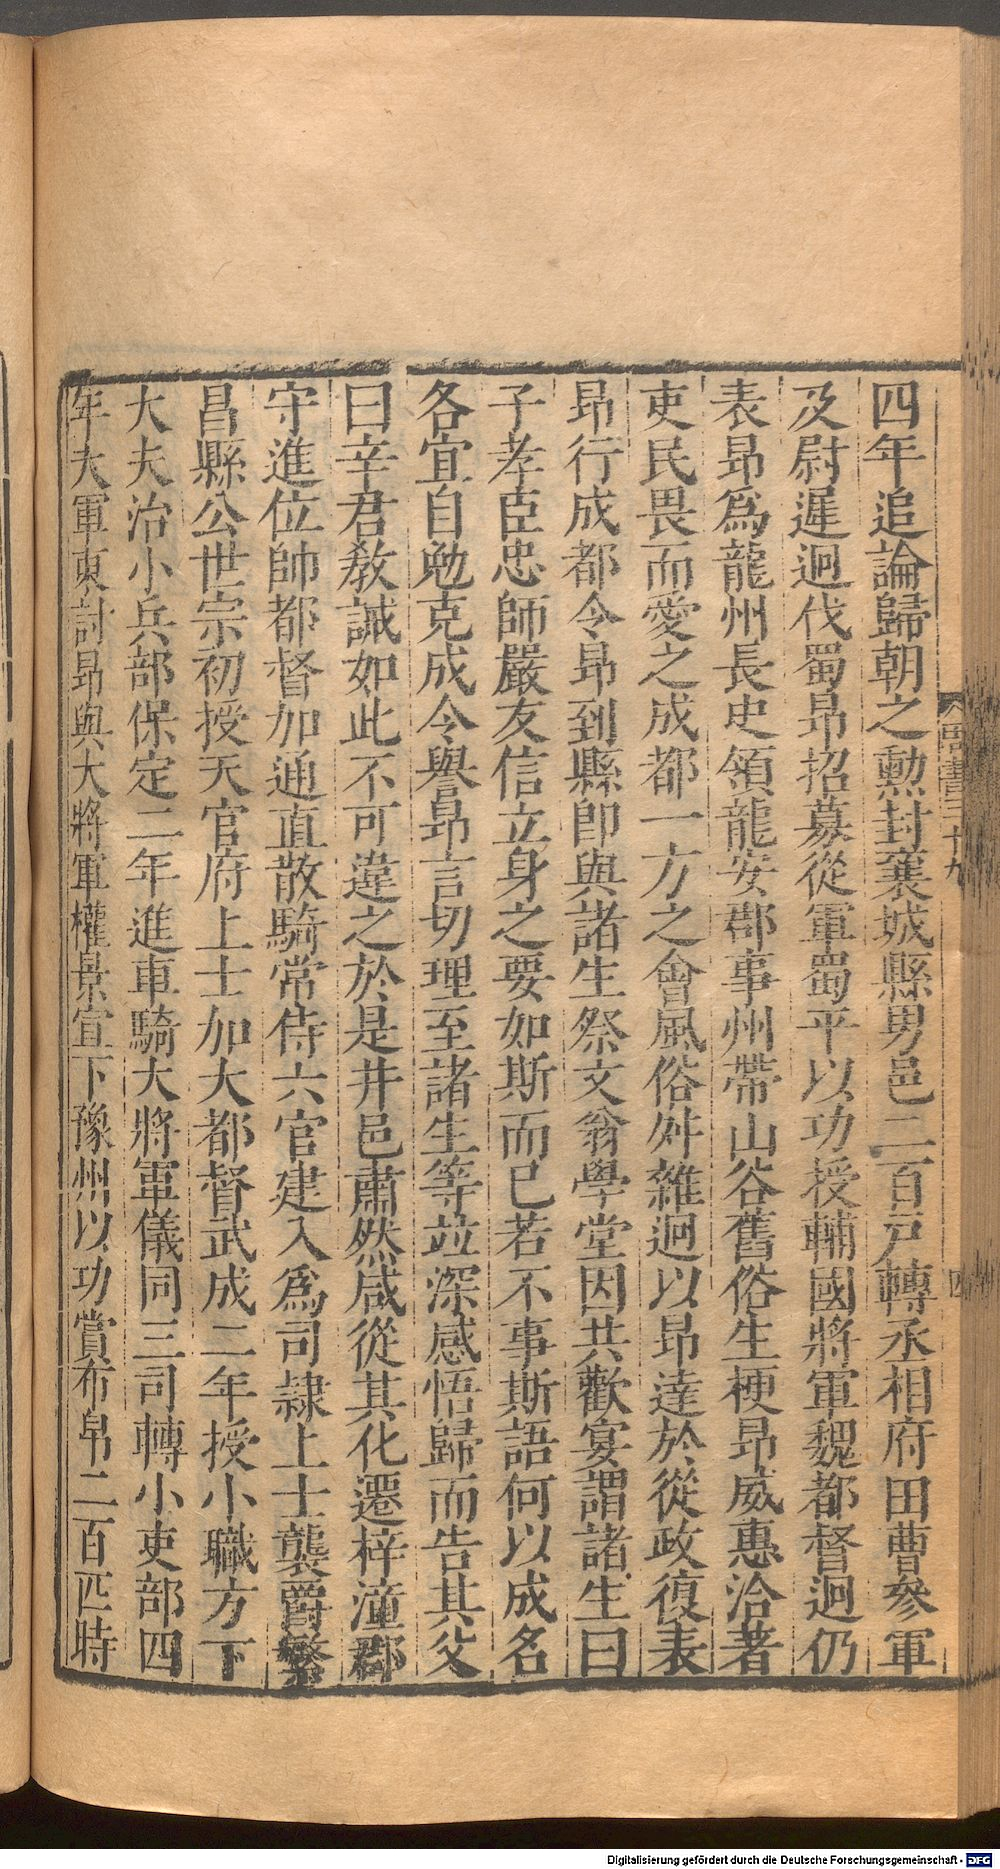 四年追論歸朝之勲封襄城縣男邑二百戸轉丞相府田曹參軍
及尉遲迥伐蜀昂招募從軍蜀平以功授輔國將軍魏都督迥仍
表昂爲龍州長史領龍安郡事州帶山谷舊俗生梗昂威惠洽著
吏民畏而愛之成都一方之會風俗舛雜迥以昂達於從政復表
昂行成都令昂到縣即與諸生祭文翁學堂因共歡宴謂諸生曰
子孝臣忠師嚴友信立身之要如斯而已若不事斯語何以成名
各宜自勉克成令譽昂言切理至諸生等竝深感悟歸而告其父
曰辛君敎誡如此不可違之於是井邑肅然咸從其化遷梓潼郡
守進位帥都督加通直散騎常侍六官建入爲司隷上士襲爵繁
昌縣公世宗初授天官府上士加大都督武成二年授小職方下
大夫治小兵部保定二年進車騎大將軍儀同三司轉小吏部四
年大軍東討昂與大將軍權景宣下豫州以功賞布帛二百匹時
書三十九
四
Digitalisierung gefördert durch die Deutsche Forschungsgemeinschaft - DFG